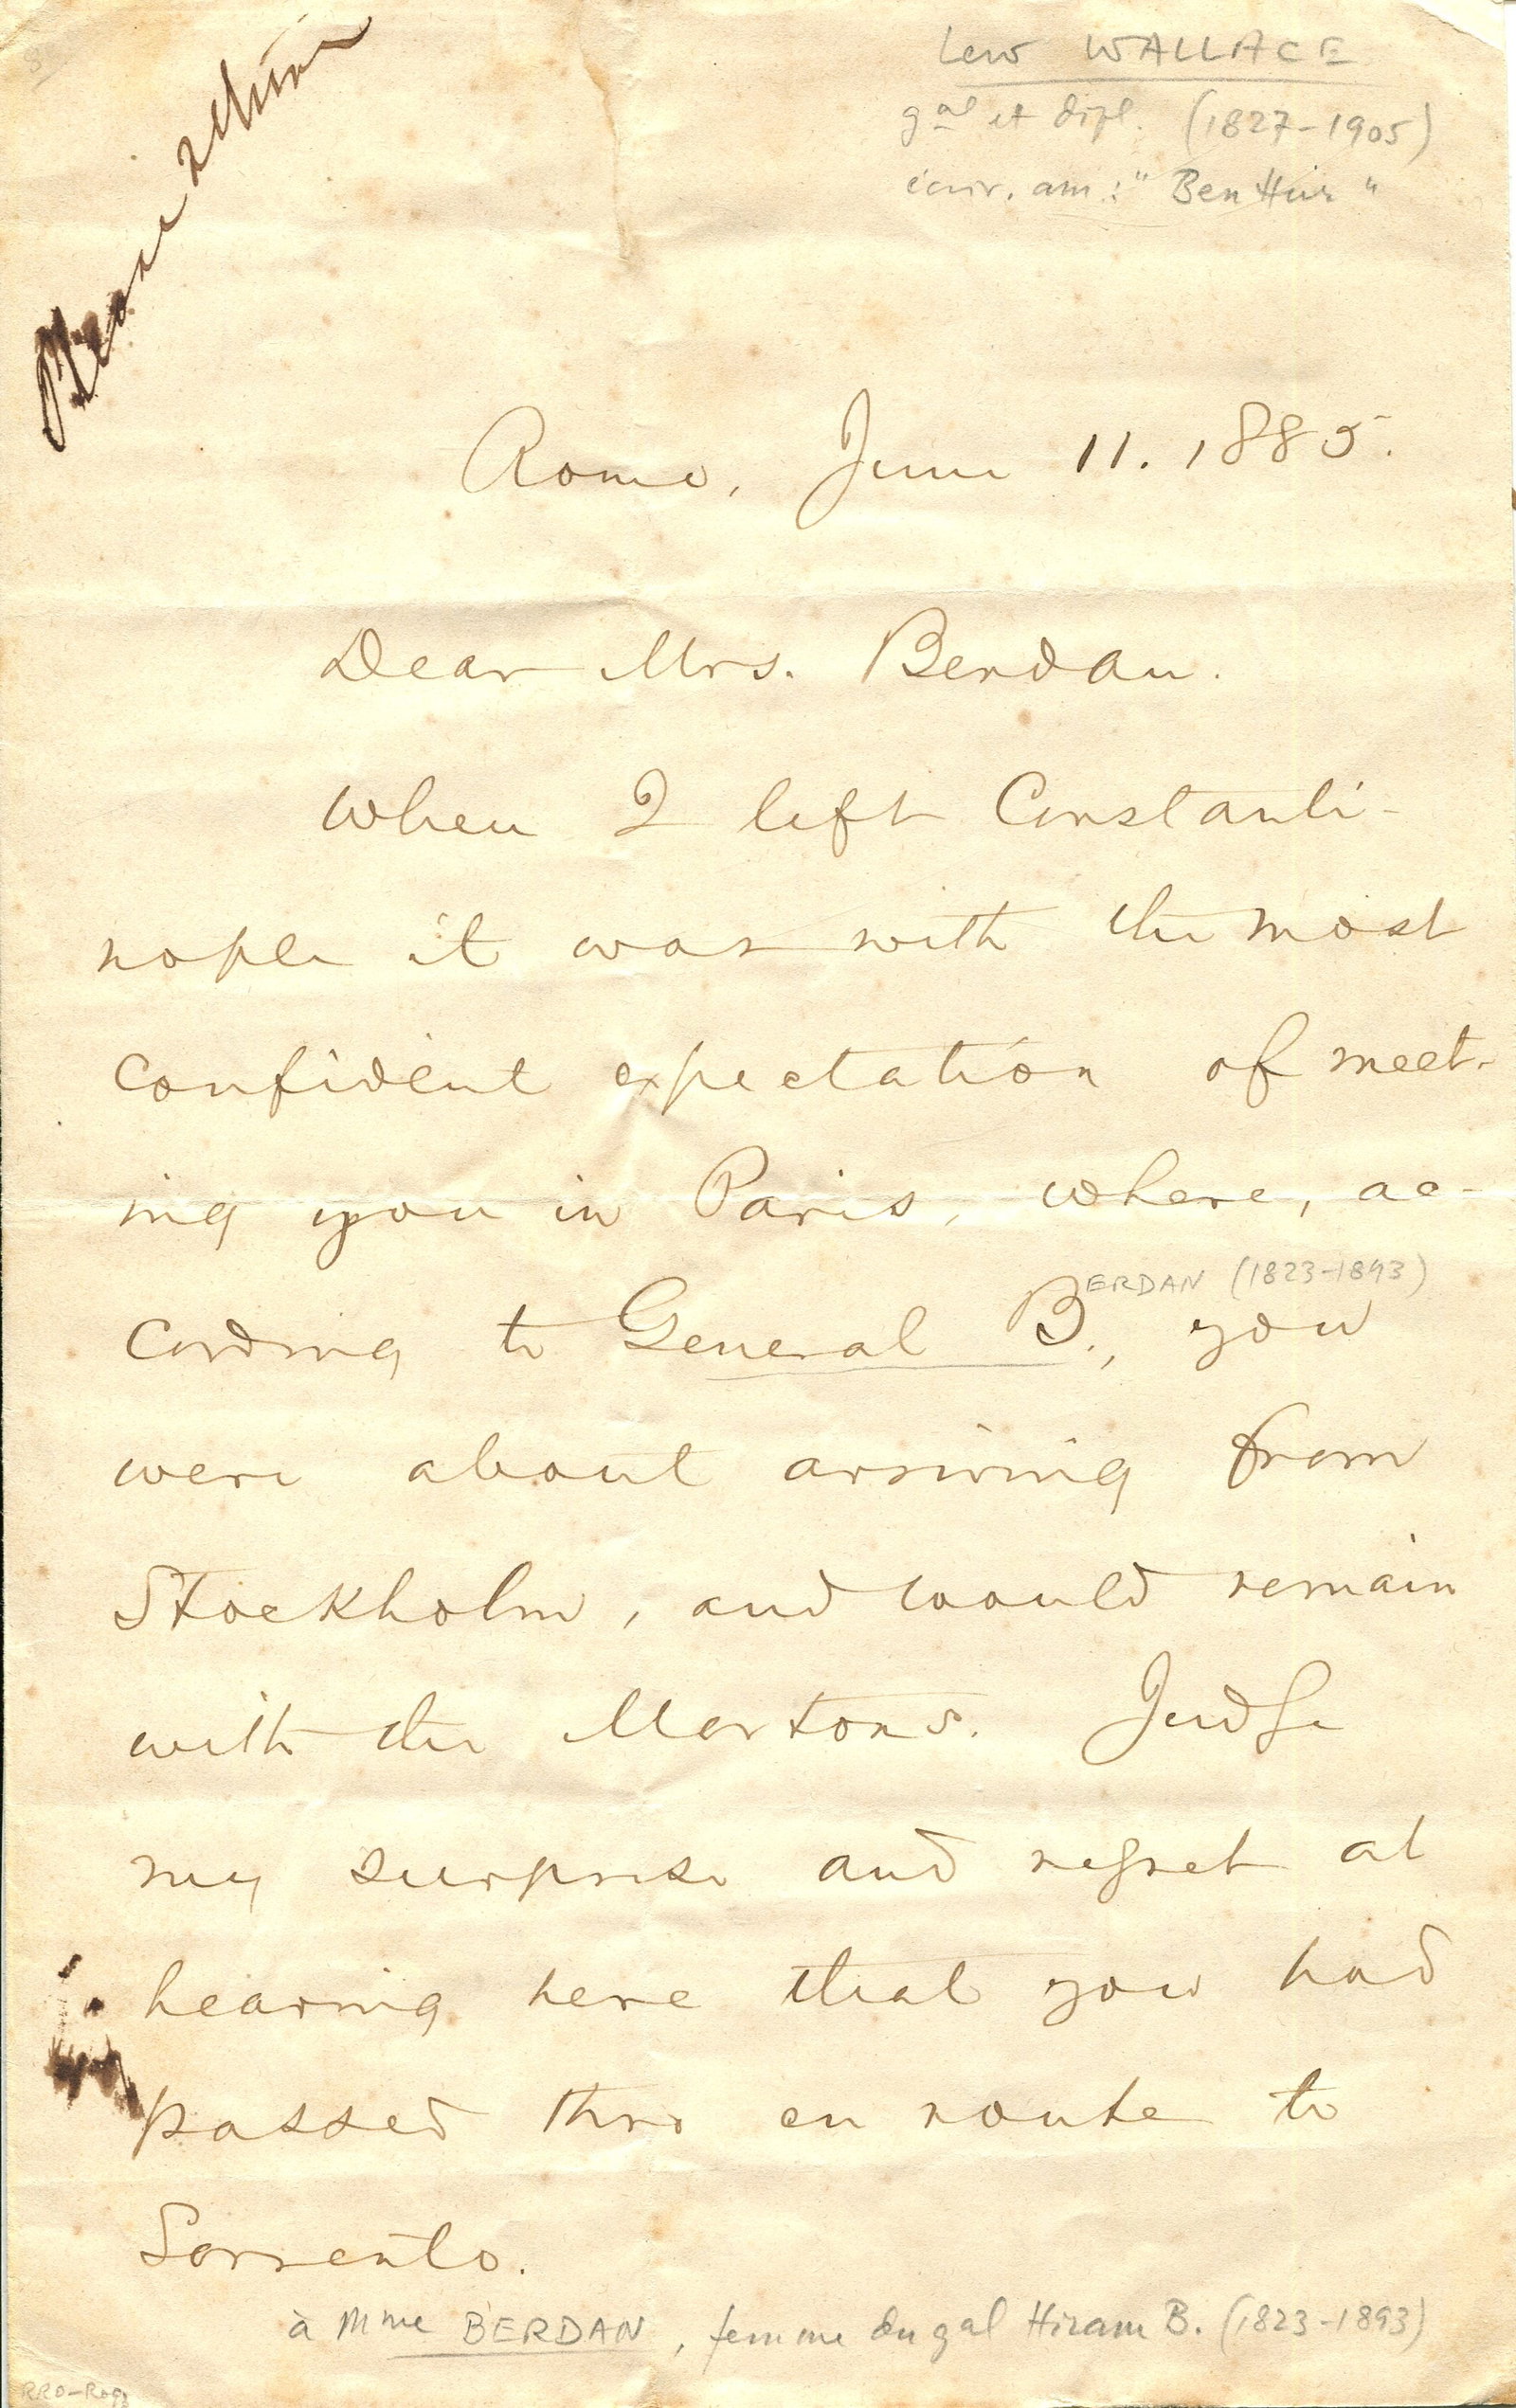 Please return
Lew WALLACE
gal et dipl. (1827-1905)
écriv. am : "Ben Hur"
Rome, June 11. 1885.
Dear Mrs. Berdan.
When I left Constanti-
nople it was with the most
confident expectation of meet-
ing you in Paris, where, ac-
cording to General B., you
ERDAN (1823-1893)
were about arriving from
Stockholm, and would remain
with the Mortons. Judge
my surprise and regret at
hearing here that you had
passed thro en route to
Sorrento.
à Mme BERDAN, femme du gal Hiram B. (1823-1893)